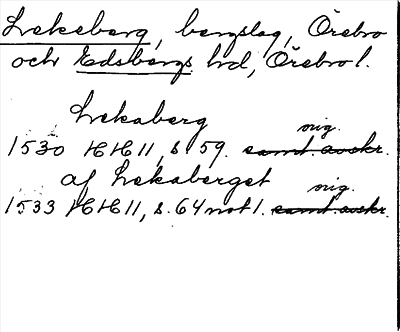 Lekeberg, bergslag, Örebro
och Edsbergs hd, Örebro l.
Lekaberg
orig.
1530 HH II, s. 59. samt. avskr.
af Lekaberget
orig.
1533 HH II, s. 64 not 1. samt. avskr.